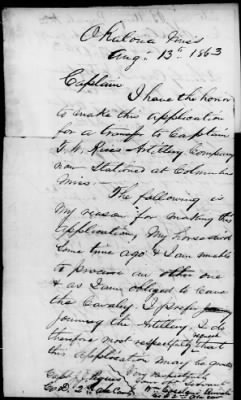 Okalona Miss
Aug. 13th 1863
Captain
I have the honor
to make this application
for a transfer to Captain
Artillery Company
now Stationed at Columbus
Miss.
The following is
My reason for making this
application, My horse died
Some time ago & I am unable
to procure an other one
& as I am obliged to leave
the Cavalry. I prefer
joining the Artillery, I do
therefore most respectfully request
that this application may be granted
Very respectfully
Capt
Co. D. 2nd